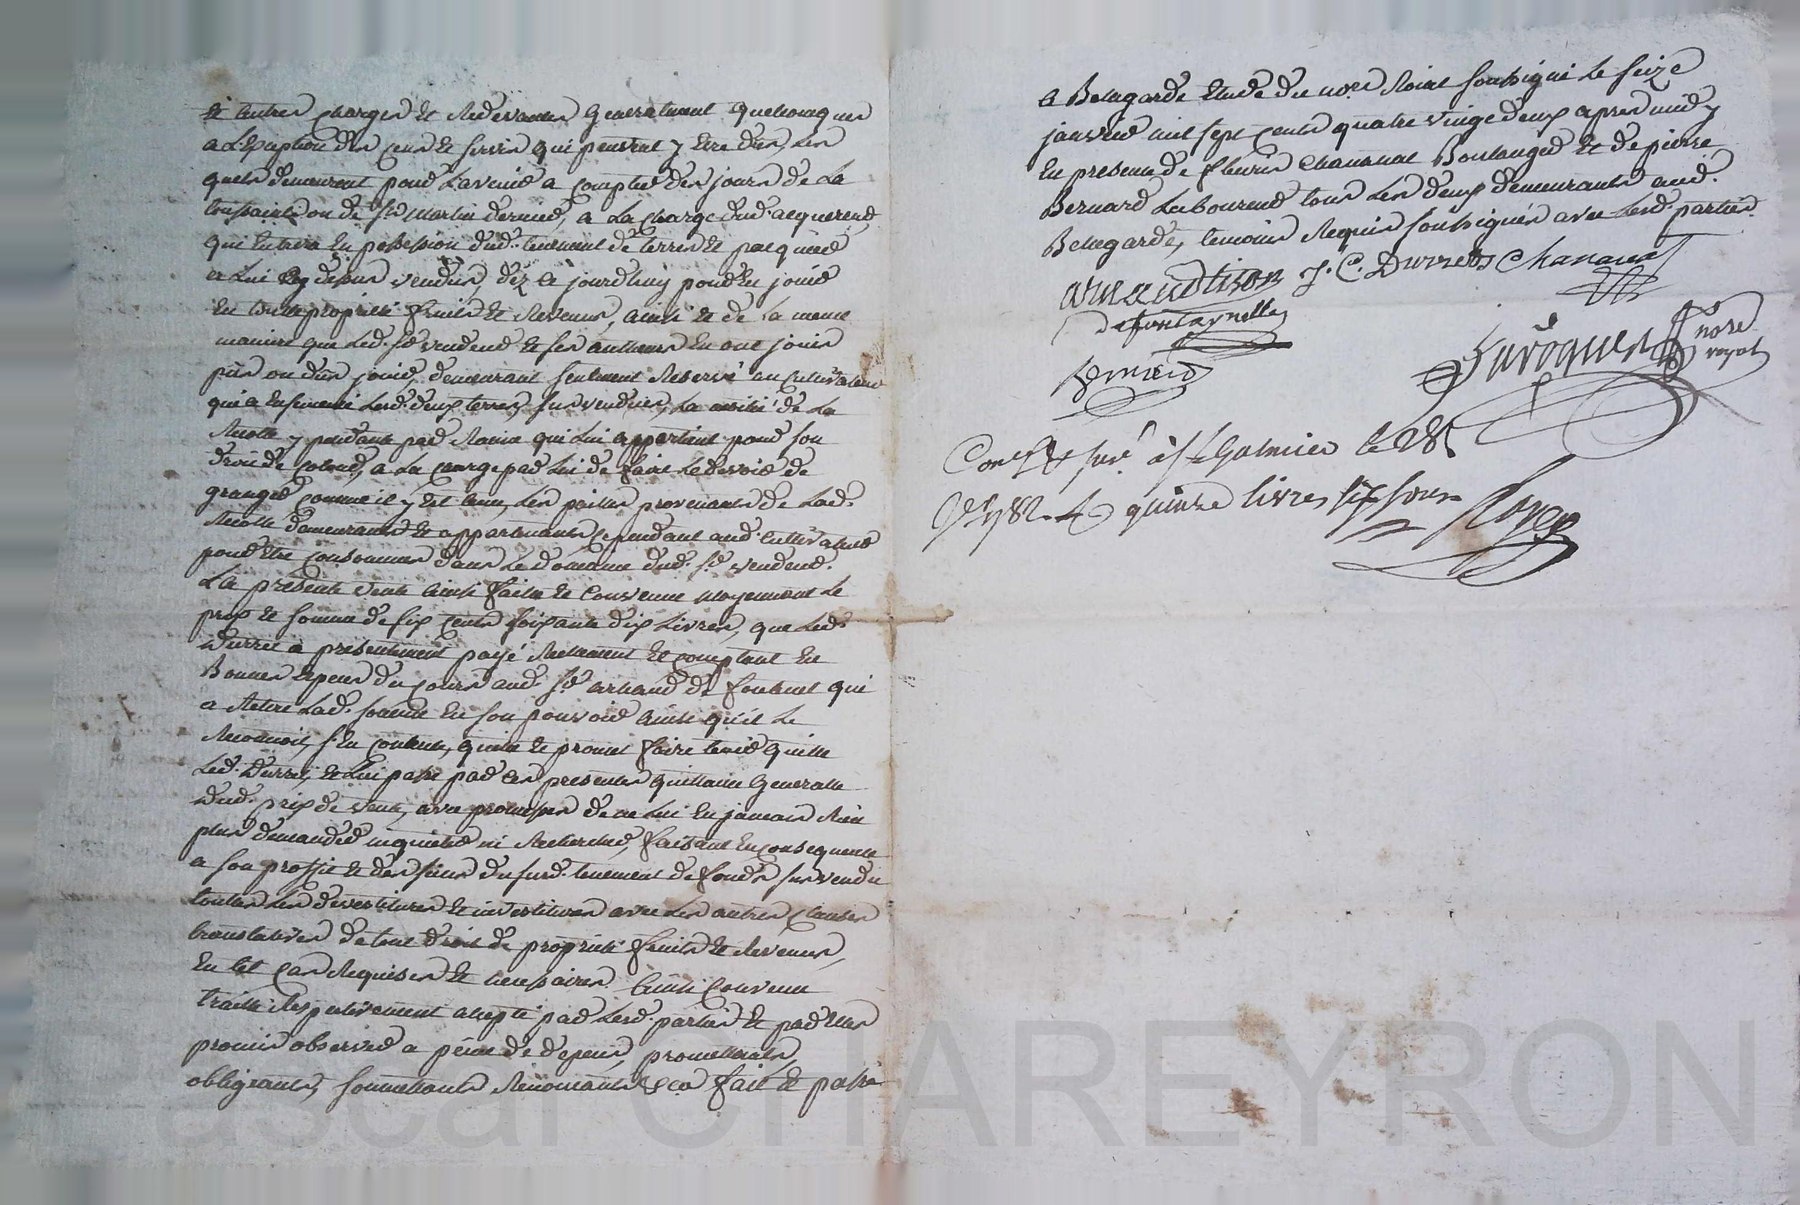 et autres charges et Redevances Generalement quelconques
a L'Exception des cens et servis qui peuvent y Etre dus, Les
quels demeurent pour L'avenir a compter des jours de La
toussaints ou de St Martin dernier, a La charge dud. acquereur,
qui Entrera En possession dud. tenement de terres et pacquiers
a Lui cy dessus vendus, déz ce jourdhuy pour En jouir
En toute propriété fruits et Revenus, ainsi et de La meme
maniere que Led. Sr vendeur et ses autheurs En ont jouis
pus ou dus jouir, demeurant seulement Reservé au cultivateur
qui a Ensemencé Lesd. deux terres survendues, La moitié de La
Recolte y pendante par Racine qui Lui appartient pour son
droit de Colon, a La charge par Lui de faire Le devoir de
granger comme il y Est tenu, Les pailles provenants de Lad.
Recolte demeurants et appartenants cependant aud. cultivateur
pour Etre Consommés dans Le domaine dud. Sr vendeur.
La presente vente ainsi faitte et Convenue moyennant Le
prix et somme de six cents soixante dix Livres, que Led.
Durret a presentement payé Reellement et comptant En
Bonnes Especes du cours aud. Sr arnaud de fontanet qui
a Retiré Lad. somme En son pouvoir ainsi qu'il Le
Reconnoit, s'En contente, quitte et promet faire tenir quitte
Led. Durret, et Lui passe par ces presentes quittance Generalle
Dud. prix de vente, avec promesses de ne Lui En jamais Rien
plus demander inquieter ni Rechercher, faisant En consequence
a son proffit et des siens du surd. tenement de fonds survendu
toutes Les devestitures et investitures avec Les autres clauses
translatives de tout droit de propriété fruits et Revenus,
En tel cas Requises et necessaires. Ainsi Convenu
traitté Respectivement accepté par Lesd. parties et par Elles
promis observer a peine de depens, promettants,
obligeants, soumettants Renonçants &ca fait et passé
a Bellegarde Etude du nore Roial soussigné Le seize
janvier mil sept cents quatre vingt deux apres midy
En presence de fleuris Chananat Boulanger et de pierre
Bernard Laboureur tous Les deux demeurants aud.
Bellegarde, temoins Requis soussignés avec Lesd. parties.
arnaud tison J. C. Durret Chananat
defontaynelle
Bernard
Laroque nore
royal
Conlé et sné à St Galmier le 28
1782. quinze livres six sous